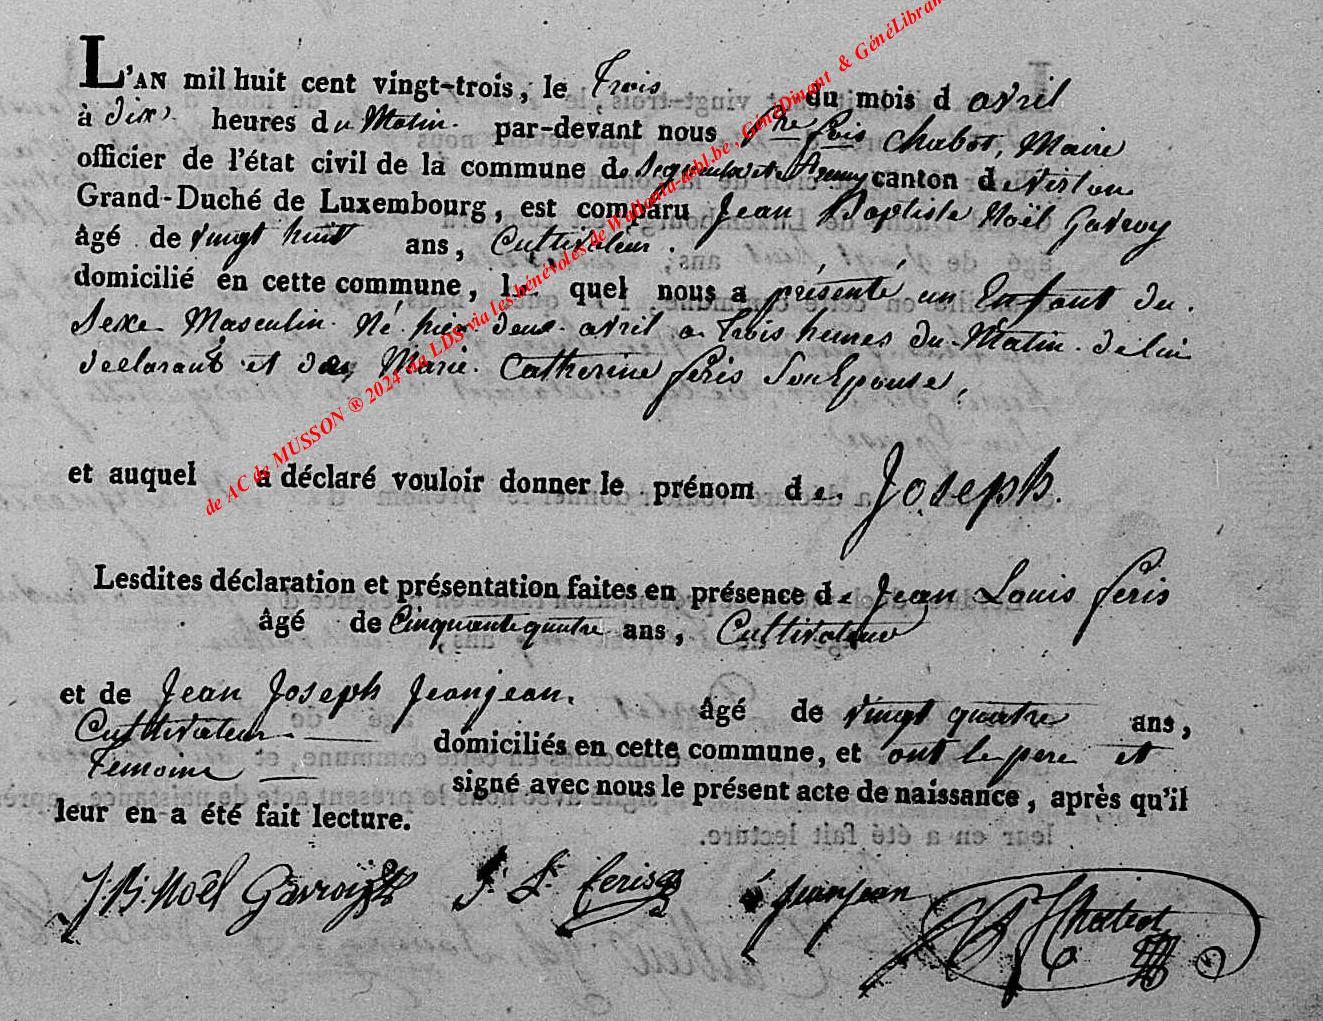 L'AN mil huit cent vingt-trois, le Trois du mois d avril
à dix heures du Matin. par-devant nous Pre fois Chabot, Maire
officier de l'état civil de la commune de et canton de Virton
Grand-Duché de Luxembourg, est comparu Jean Baptiste Noël Gavroy
âgé de vingt huit ans, Cultivateur.
domicilié en cette commune, le quel nous a présenté un Enfant du
Sexe Masculin Né hier deux avril a Trois heures du Matin de lui
declarant et de Marie Catherine feris Son Epouse,
et auquel a déclaré vouloir donner le prénom de Joseph.
Lesdites déclaration et présentation faites en présence de Jean Louis feris
âgé de Cinquante quatre ans, Cultivateur
et de Jean Joseph Jeanjean, âgé de vingt quatre ans,
Cultivateur domiciliés en cette commune, et ont le pere et
Temoins signé avec nous le présent acte de naissance, après qu'il
leur en a été fait lecture.
J. B. Noël Gavroy J. L. feris J jeanjean P F Chabot
de AC de MUSSON ® 2024 da LDS via les bénévoles de Wallonia-asbl.be, GénéDinant & GénéLibran